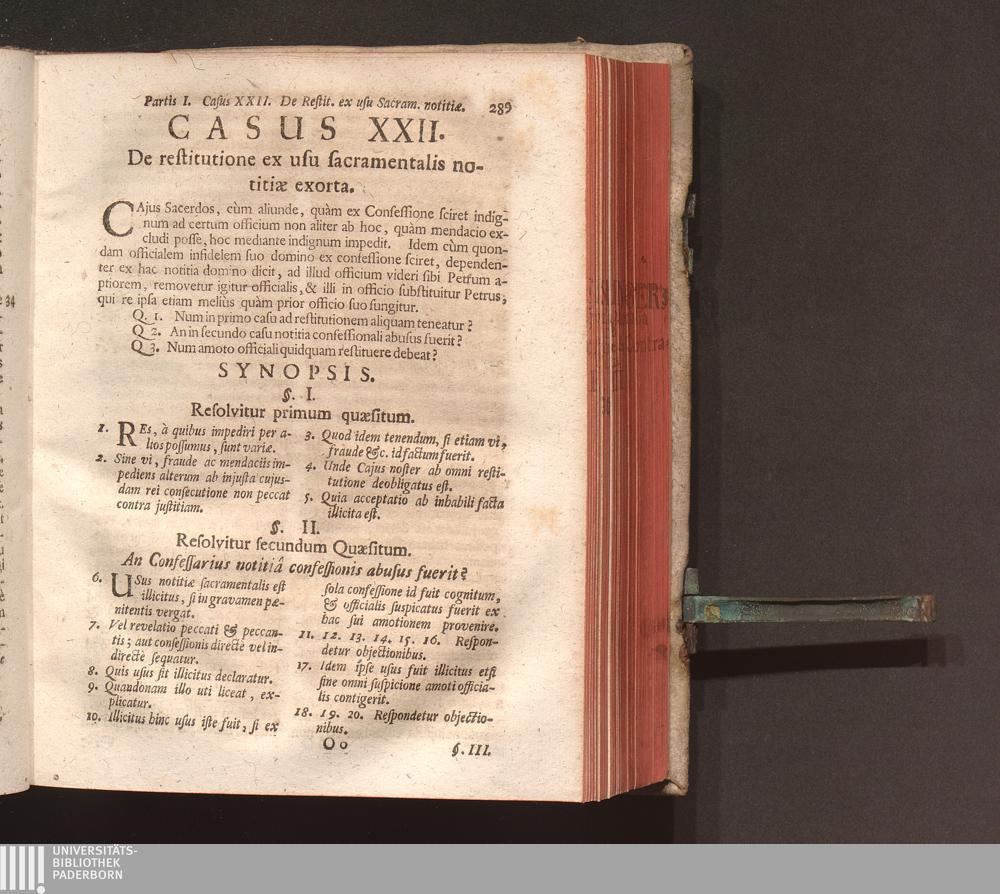 Partis I. Casus XXII. De Restit. ex usu Sacram. notitiæ. 289
CASUS XXII.
De restitutione ex usu sacramentalis no-
titiæ exorta.
CAjus Sacerdos, cùm aliunde, quàm ex Confessione sciret indig-
num ad certum officium non aliter ab hoc, quàm mendacio ex-
cludi posse, hoc mediante indignum impedit. Idem cùm quon-
dam officialem infidelem suo domino ex confessione sciret, dependen-
ter ex hac notitia domino dicit, ad illud officium videri sibi Petrum a-
ptiorem, removetur igitur officialis, & illi in officio substituitur Petrus,
qui re ipsa etiam meliùs quàm prior officio suo fungitur.
Q. 1. Num in primo casu ad restitutionem aliquam teneatur?
Q. 2. An in secundo casu notitia confessionali abusus fuerit?
Q. 3. Num amoto officiali quidquam restituere debeat?
SYNOPSIS.
§. I.
Resolvitur primum quæsitum.
1. REs, à quibus impediri per a-
lios possumus, sunt variæ.
2. Sine vi, fraude ac mendaciis im-
pediens alterum ab injusta cujus-
dam rei consecutione non peccat
contra justitiam.
3. Quod idem tenendum, si etiam vi,
fraude &c. id factum fuerit.
4. Unde Cajus noster ab omni resti-
tutione deobligatus est.
5. Quia acceptatio ab inhabili facta
illicita est.
§. II.
Resolvitur secundum Quæsitum.
An Confessarius notitiâ confessionis abusus fuerit?
6. USus notitiæ sacramentalis est
illicitus, si in gravamen pœ-
nitentis vergat.
7. Vel revelatio peccati & peccan-
tis; aut confessionis directè vel in-
directè sequatur.
8. Quis usus sit illicitus declaratur.
9. Quandonam illo uti liceat, ex-
plicatur.
10. Illicitus hinc usus iste fuit, si ex
sola confessione id fuit cognitum,
& officialis suspicatus fuerit ex
hac sui amotionem provenire.
11. 12. 13. 14. 15. 16. Respon-
detur objectionibus.
17. Idem ipse usus fuit illicitus etsi
sine omni suspicione amoti officia-
lis contigerit.
18. 19. 20. Respondetur objectio-
nibus.
Oo §. III.
34
UNIVERSITÄTS-
BIBLIOTHEK
PADERBORN